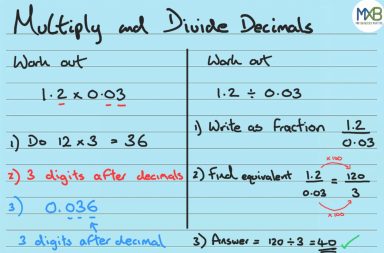 Multiply and Divide Decimals
MXB
Work out
1.2 x 0.03
1) Do 12 x 3 = 36
2) 3 digits after decimals
3) 0.036
3 digits after decimal
Work out
1.2 ÷ 0.03
1) Write as fraction 1.2
0.03
2) Find equivalent 1.2 = 120
0.03 3
x100
x100
3) Answer = 120 ÷ 3 = 40 ✓